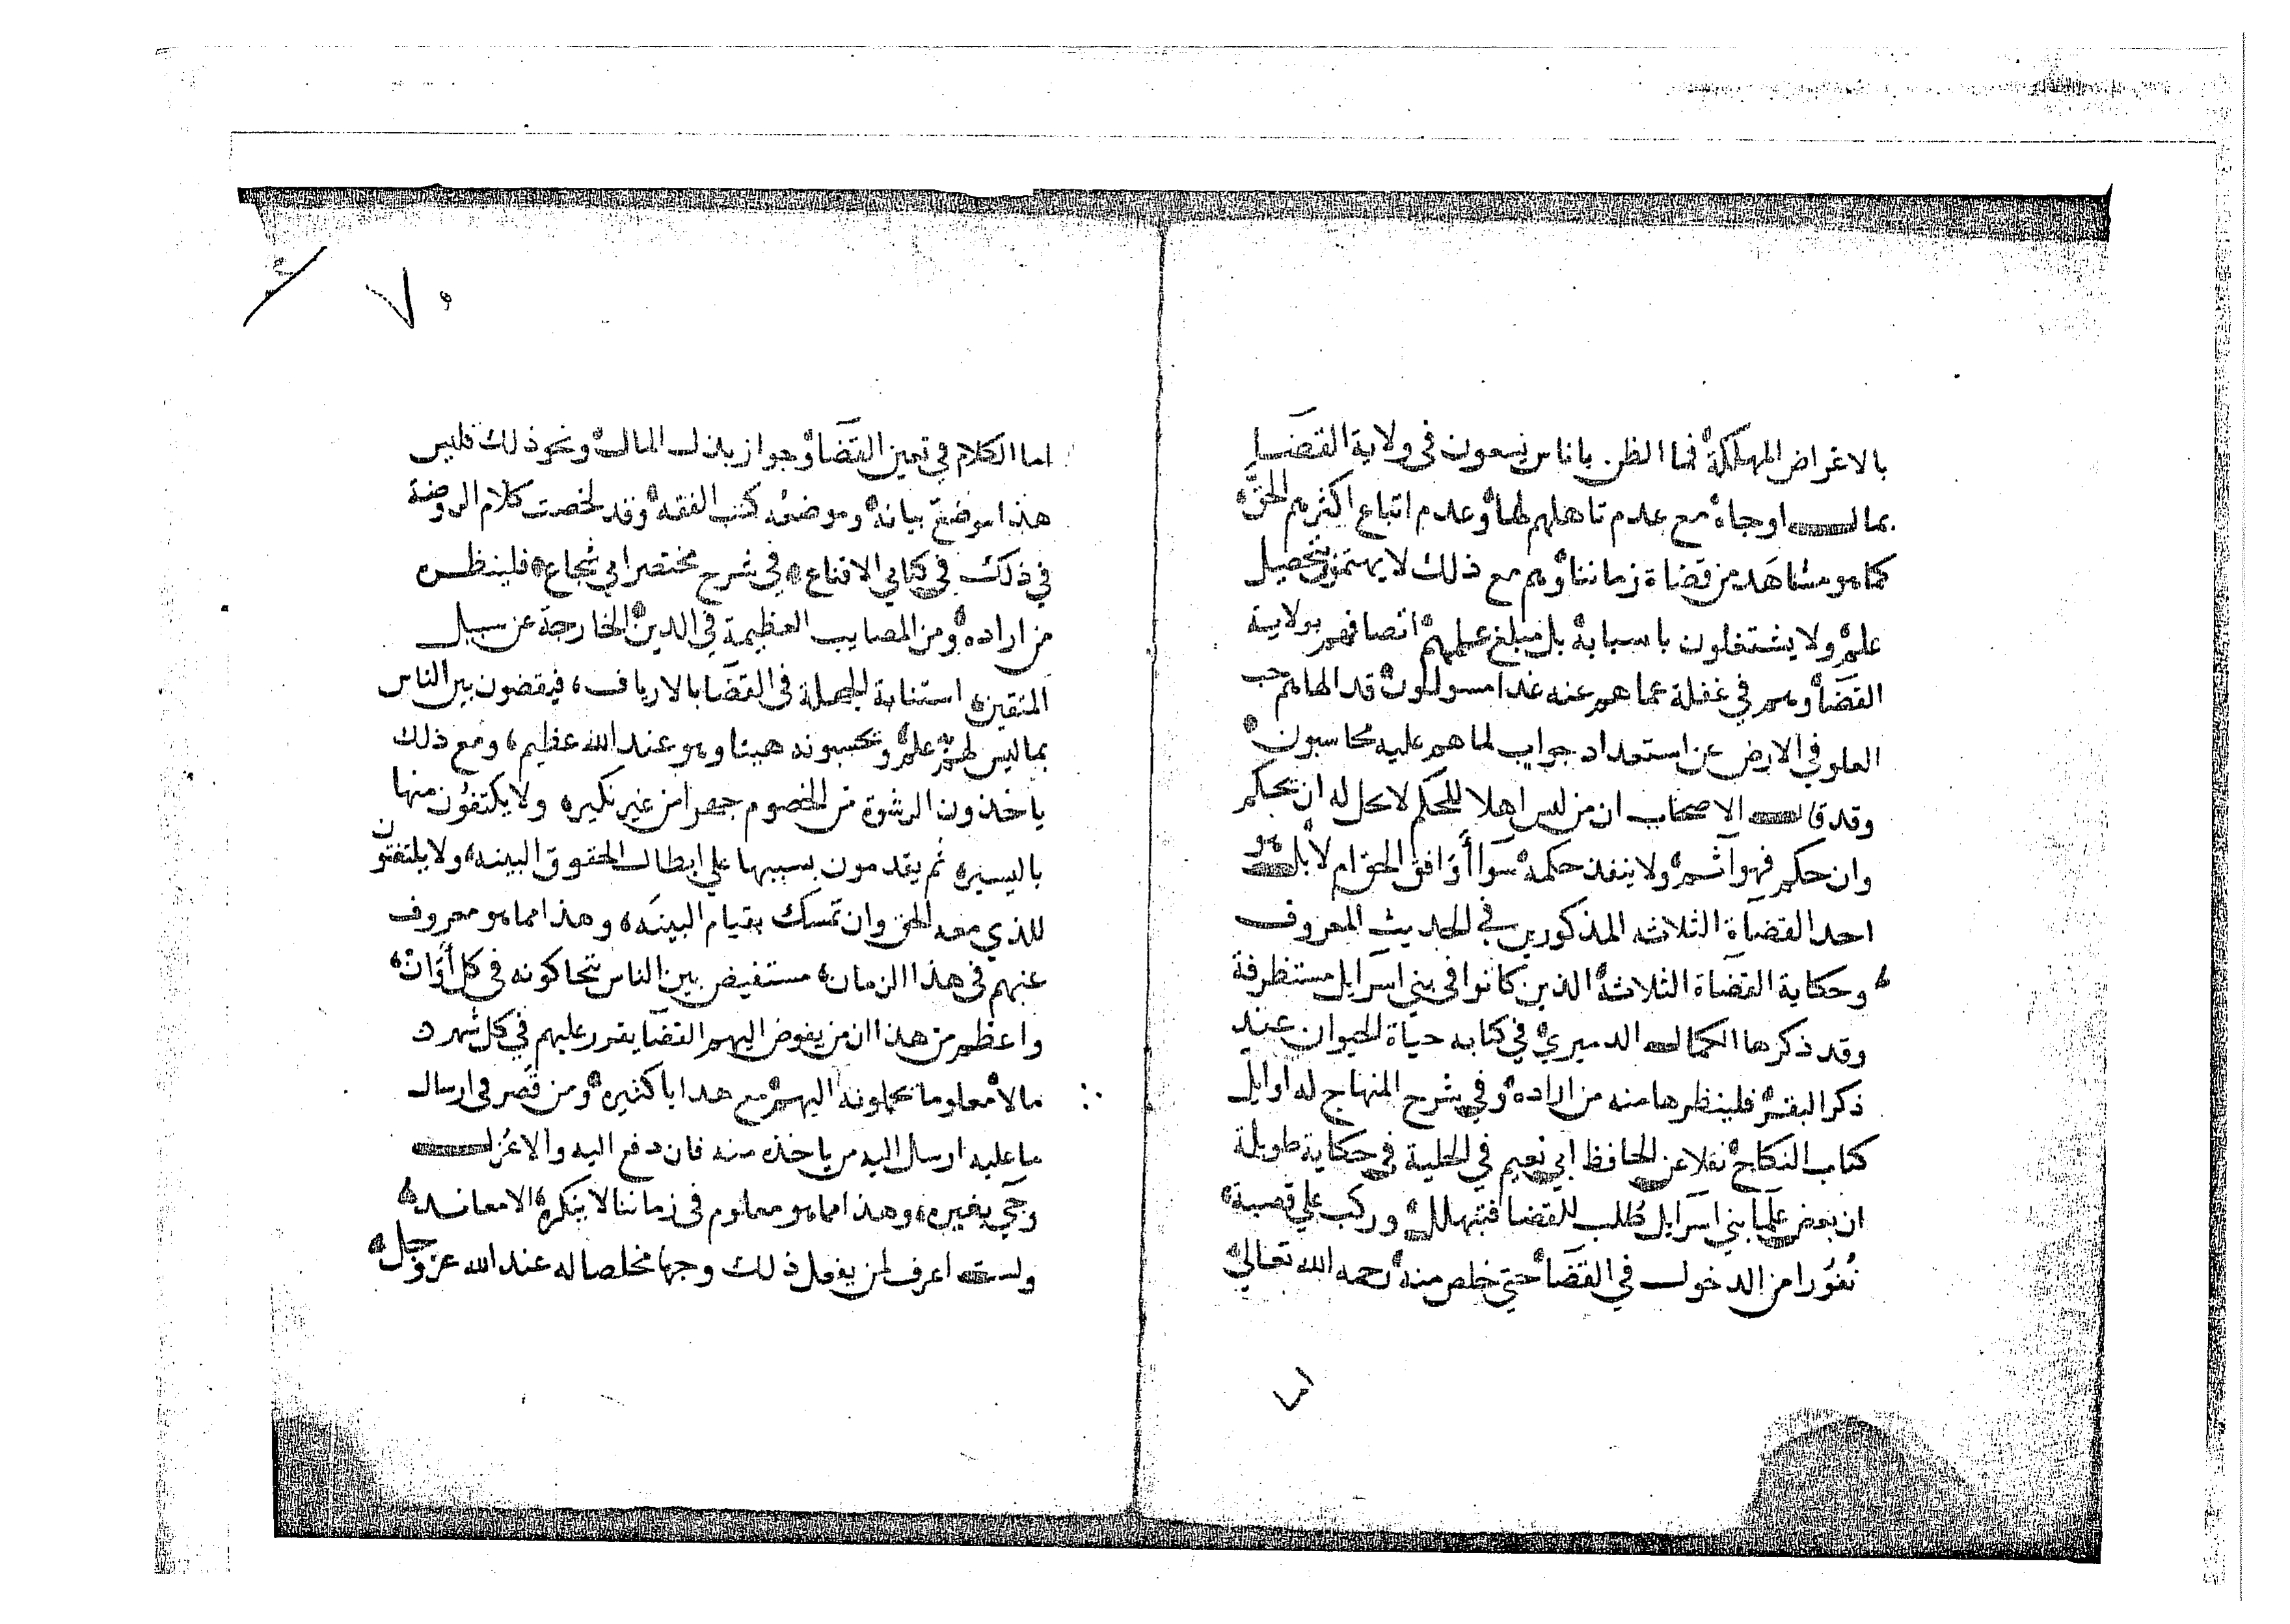 بالاغراض المهلكة فما الظن باناس يسعون في ولاية القضا
بمال اوجاه مع عدم تاهلهم لها وعدم اتباع اكثرهم الحق
كما هو مشاهد من قضاة زماننا وهم مع ذلك لا يهتمون بتحصيل
علم ولا يشتغلون باسبابه بل مبلغ علمهم اتصافهم بولاية
القضا وهم في غفلة عما هم عنه غدا مسولون قد الهاهم حب
العلو في الارض عن استعداد جواب لما هم عليه محاسبون
وقد قال الاصحاب ان من ليس اهلا للحكم لا يحل له ان يحكم
وان حكم فهو اثم ولا ينفذ حكمه سوآ أوافق الحق ام لا بل هو
احد القضاة الثلاثه المذكورين في الحديث المعروف
وحكاية القضاة الثلاثة الذين كانوا في بني اسرايل مستظرفة
وقد ذكرها الكمال الدميري في كتابه حياة الحيوان عند
ذكر البقر فلينظرها منه من اراده وفي شرح المنهاج له اوايل
كتاب النكاح نقلا عن الحافظ ابي نعيم في الحلية في حكاية طويلة
ان بعض علما بني اسرايل طلب للقضا فتبهلل وركب علي قصبة
نفورا من الدخول في القضا حتي خلص منه رحمه الله تعالي
اما
٧٠
اما الكلام في تعين القضا وجواز بذل المال ونحو ذلك فليس
هذا موضع بيانه وموضعه كتب الفقه وقد لخصت كلام الروضة
في ذلك في كتابي الاقناع في شرح مختصر ابي شجاع فلينظره
من اراده ومن المصايب العظيمة في الدين الخارجة عن سبيل
المتقين استنابة الجهلة في القضا بالارياف فيقضون بين الناس
بما ليس لهم به علم وتحسبونه هينا وهو عند الله عظيم ومع ذلك
ياخذون الرشوة من الخصوم جهرا من غير نكيره ولا يكتفون منها
باليسير ثم يقدمون بسببها علي ابطال الحقوق البينه ولا يلتفتون
للذي معه الحق وان تمسك بقيام البينه وهذا مما هو معروف
عنهم في هذا الزمان مستفيض بين الناس يتحاكونه في كل أوان
واعظم من هذا ان من يفوض اليهم القضا يقرر عليهم في كل شهر
مالا معلوما يحملونه اليهم مع هدايا كثيره ومن قصر في ارسال
ما عليه ارسل اليه من ياخذه منه فان دفع اليه والا عزل
وجي بغيره وهذا مما هو معلوم في زماننا لا ينكره الا معاند
ولست اعرف لمن يفعل ذلك وجها مخلصا له عند الله عز وجل